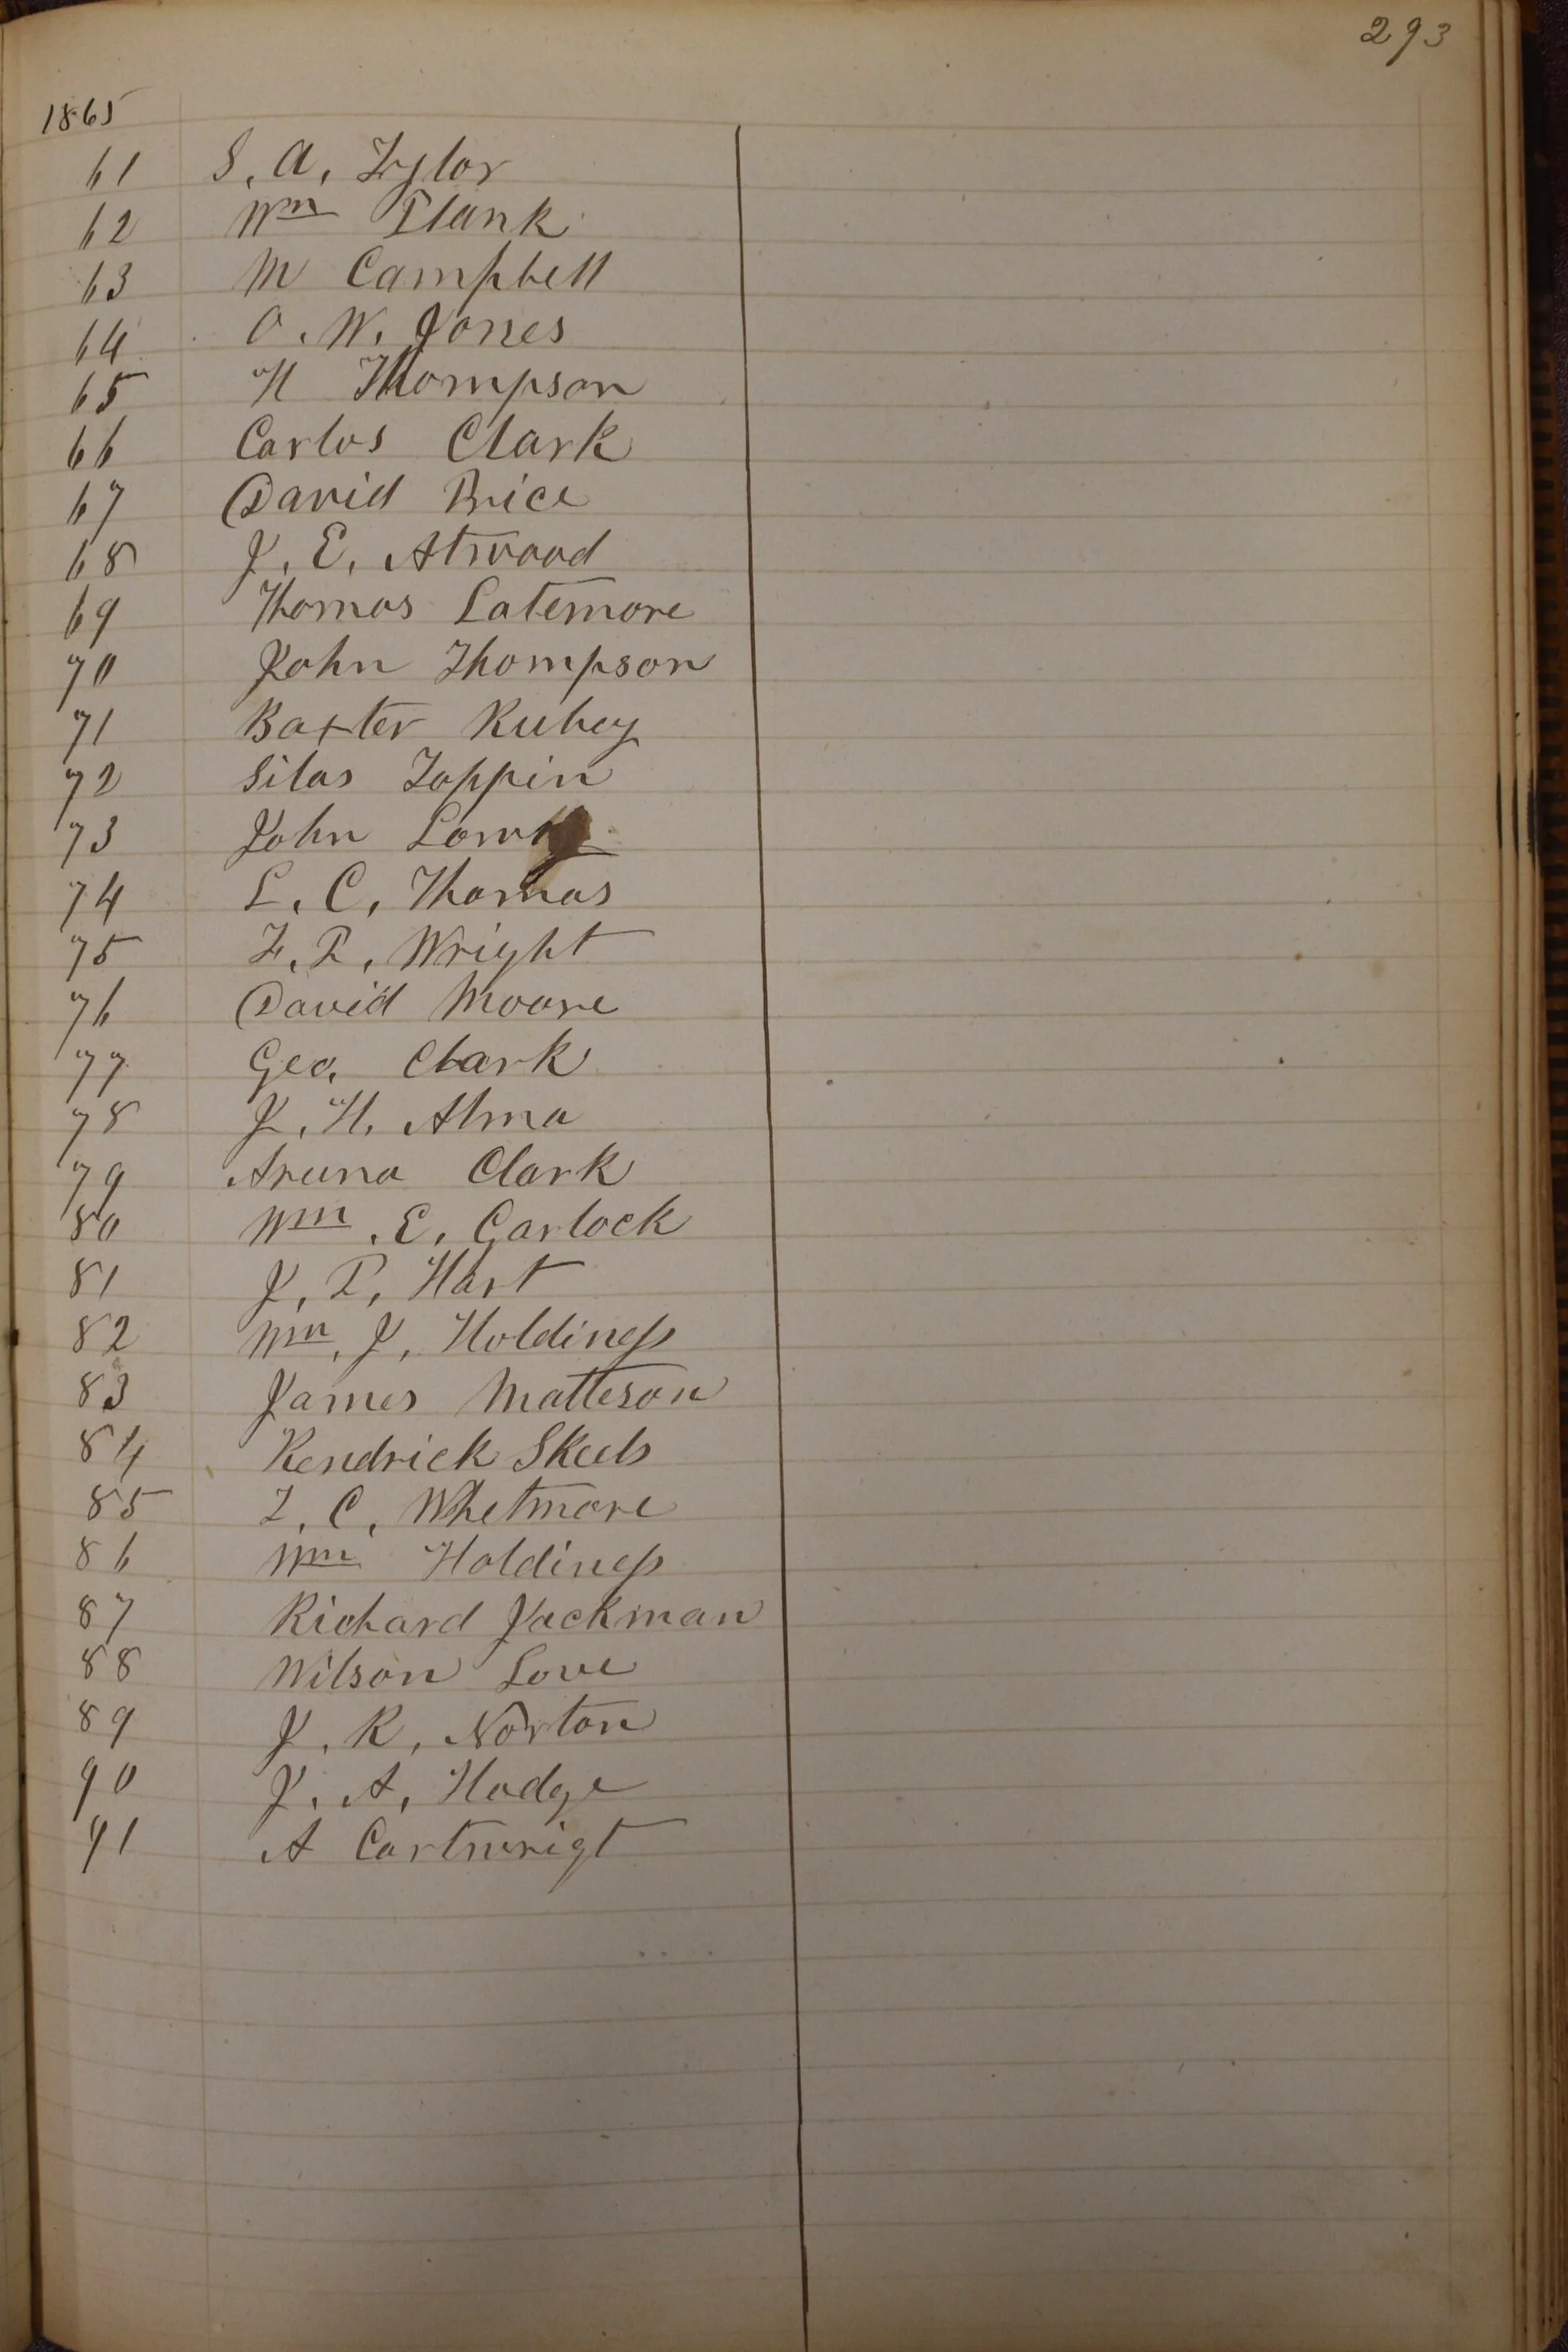 293
1865
61 S. A. Tylor
62 Wm Plank
63 M Campbell
64 O. W. Jones
65 H Thompson
66 Carlos Clark
67 David Price
68 J. E. Atwood
69 Thomas Latemore
70 John Thompson
71 Baxter Rubey
72 Silas Toppin
73 John Lowry
74 L. C. Thomas
75 T. P. Wright
76 David Moore
77 Geo. Clark
78 J. H. Alma
79 Aruna Clark
80 Wm. E. Garlock
81 J. P. Hart
82 Wm. J. Holdiness
83 James Matteson
84 Kendrick Skeels
85 T. C. Whetmore
86 Wm Holdiness
87 Richard Jackman
88 Wilson Love
89 J. R. Norton
90 J. A. Hodge
91 A Cartwrigt